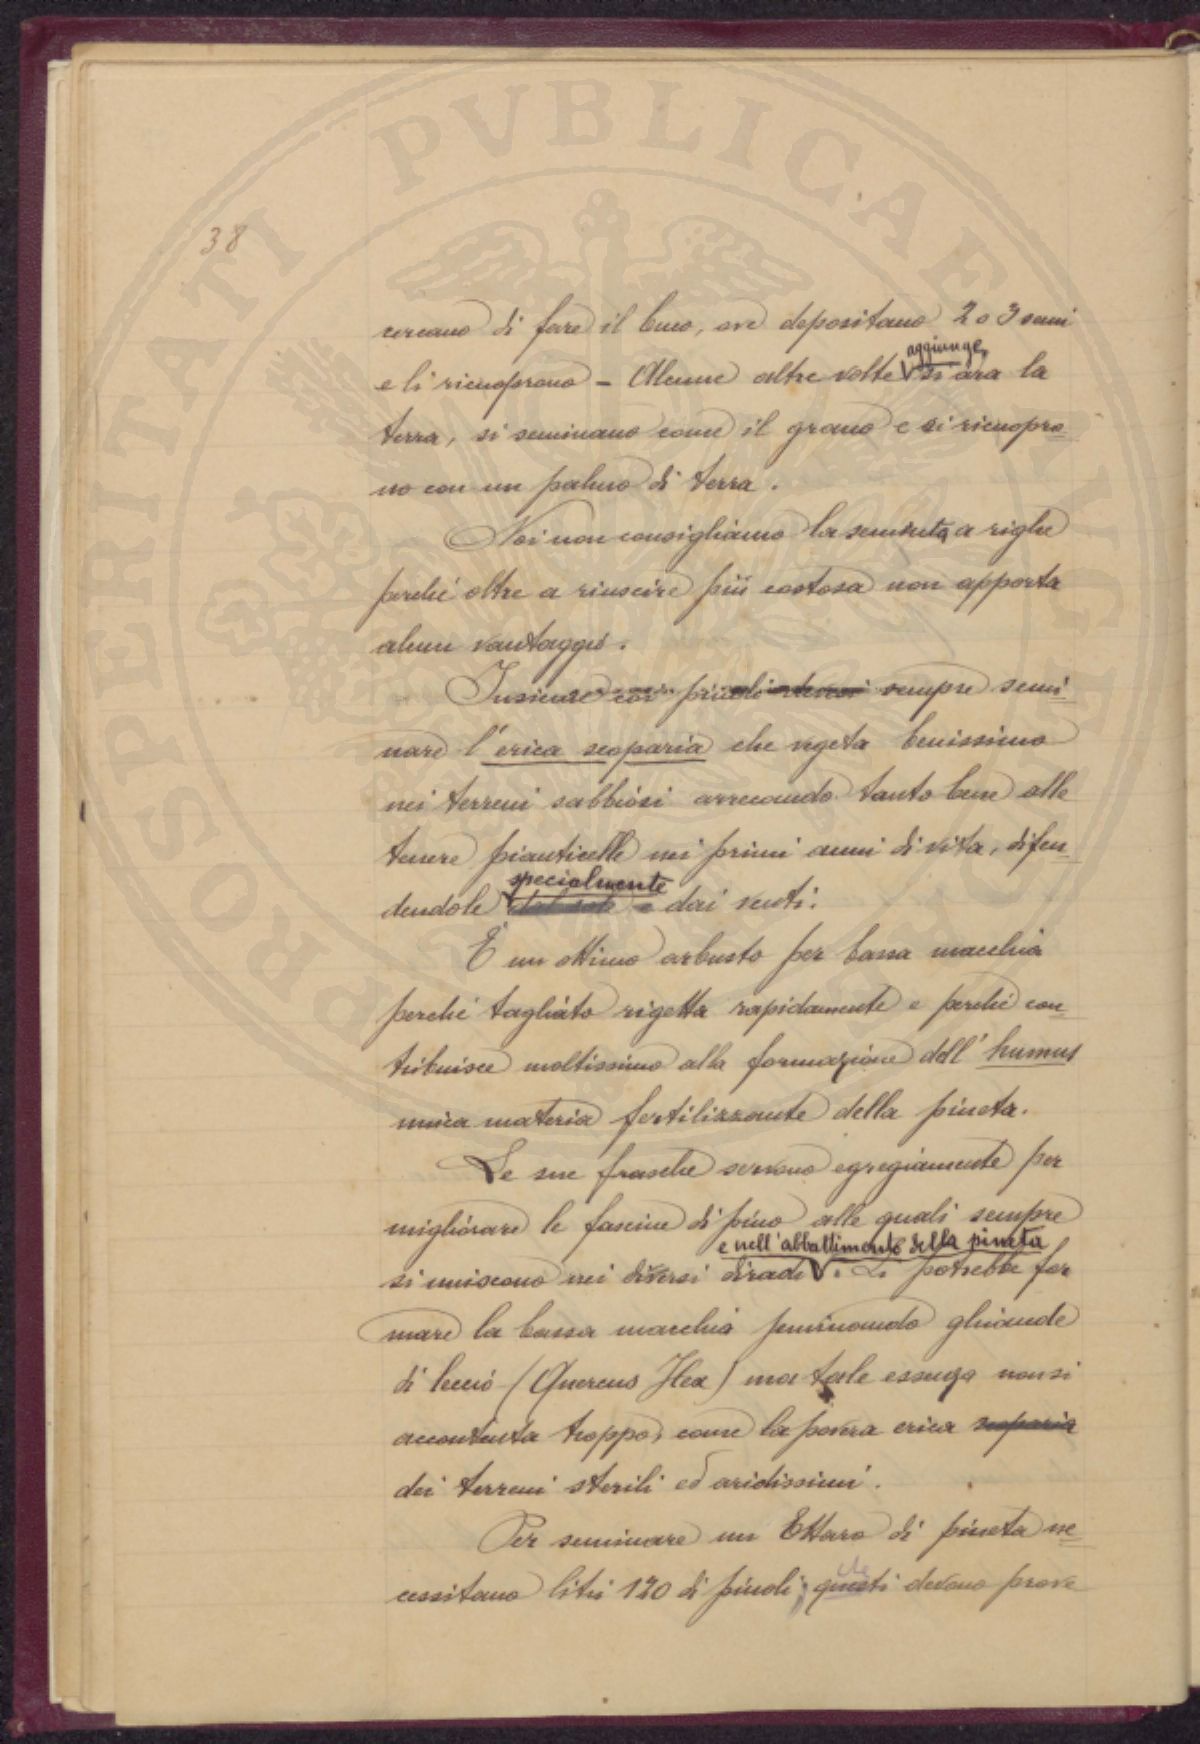 PROSPERITATI PVBLICAE AVGENDAE
38
cercano di fare il buco, ove depositano 2 o 3 semi
aggiunge,
e li ricuoprono - Alcune altre volte si ara la
terra, si seminano come il grano e si ricuopro=
no con un palmo di terra.
Noi non consigliamo la semineta a righe
perché oltre a riuscire più costosa non apporta
alcun vantaggio.
Insieme coi pinoli devesi sempre semi=
nare l'erica scoparia che vegeta benissimo
nei terreni sabbiosi arrecando tanto bene alle
tenere pianticelle nei primi anni di vita, difen=
specialmente
dendole dal sole e dai venti.
È un ottimo arbusto per bassa macchia
perché tagliato rigetta rapidamente e perché con=
tribuisce moltissimo alla formazione dell'humus
unica materia fertilizzante della pineta.
Le sue frasche servono egregiamente per
migliorare le fascine di pino alle quali sempre
e nell'abbattimento della pineta
si uniscono nei diversi diradi. Si potrebbe for
mare la bassa macchia seminando ghiande
di leccio (Quercus Ilex) ma tale essenza non si
accontenta troppo, come la povera erica scoparia
dei terreni sterili ed aridissimi.
Per seminare un Ettaro di pineta ne=
che
cessitano litri 120 di pinoli; questi devono prove